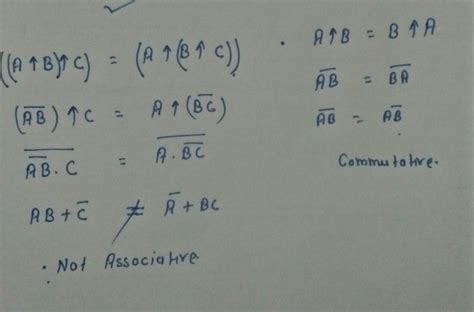 ((A ↑ B) ↑ C) = (A ↑ (B ↑ C))
(A̅B̅) ↑ C = A ↑ (B̅C̅)
\overline{\overline{AB} . C} = \overline{A . \overline{BC}}
AB + C̅ ≠ A̅ + BC
. Not Associative
. A ↑ B = B ↑ A
\overline{AB} = \overline{BA}
\overline{AB} = \overline{AB}
Commutative.